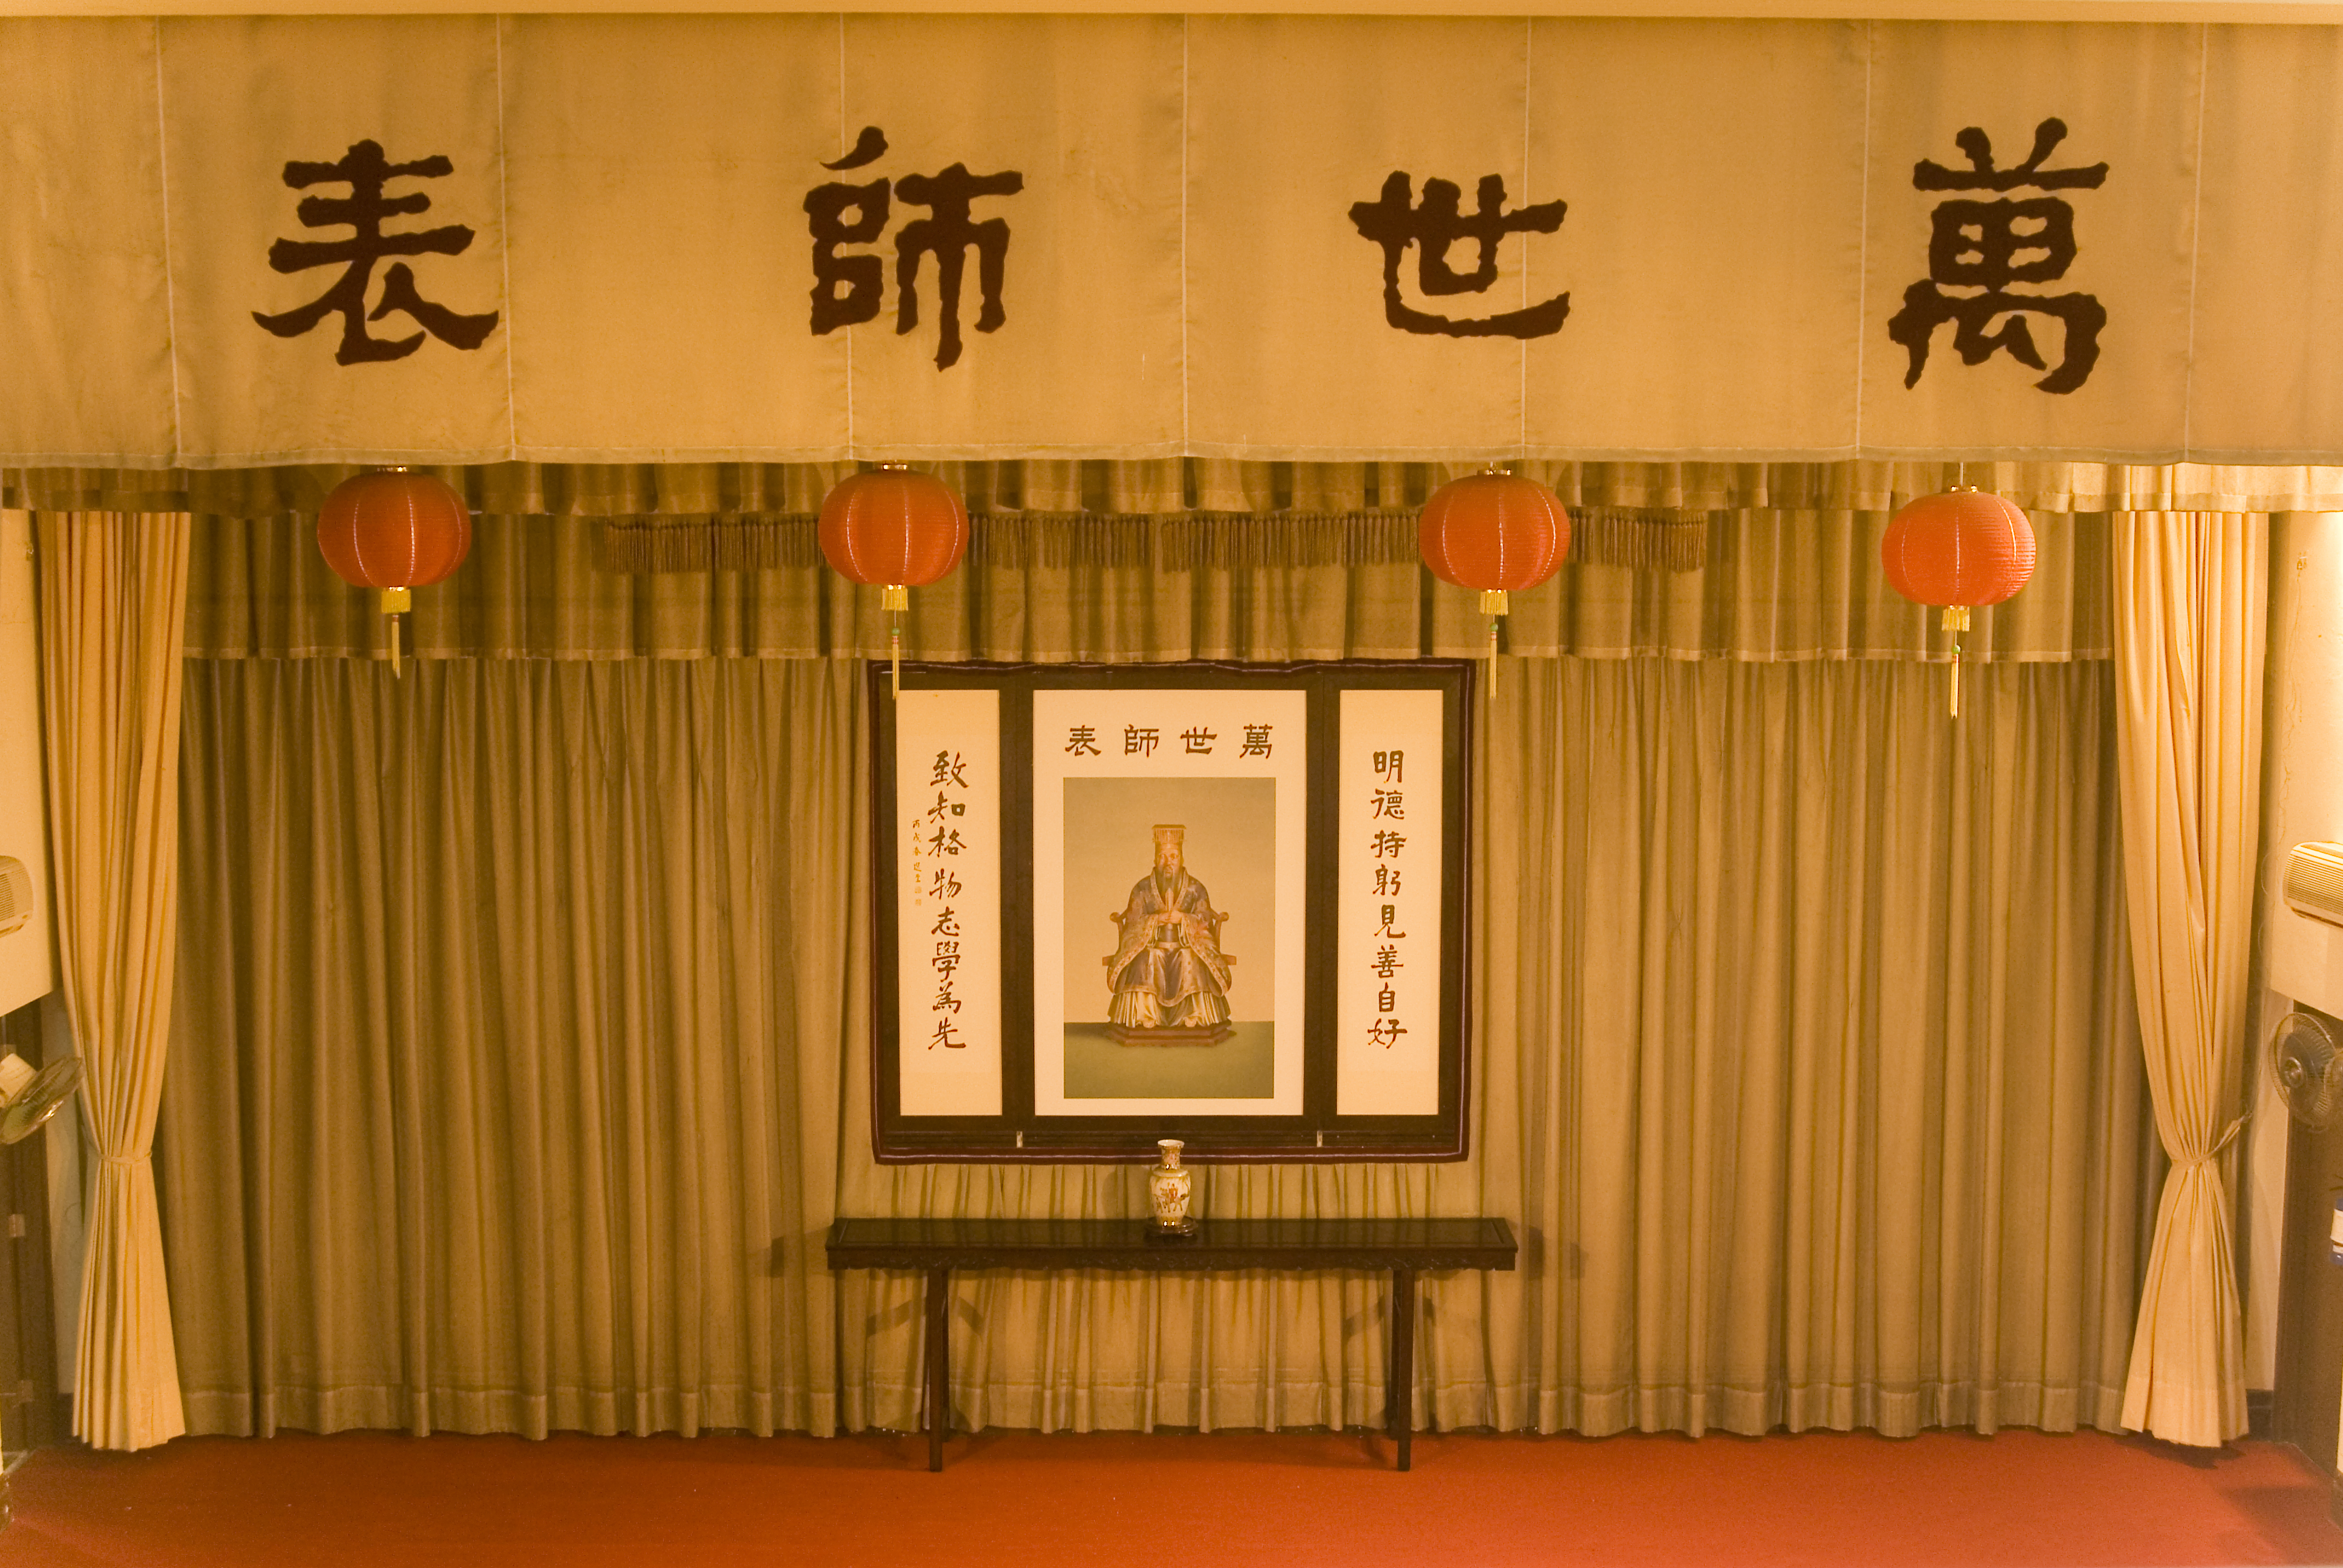 萬世師表
萬世師表
明德持躬見善自好
致知格物志學為先